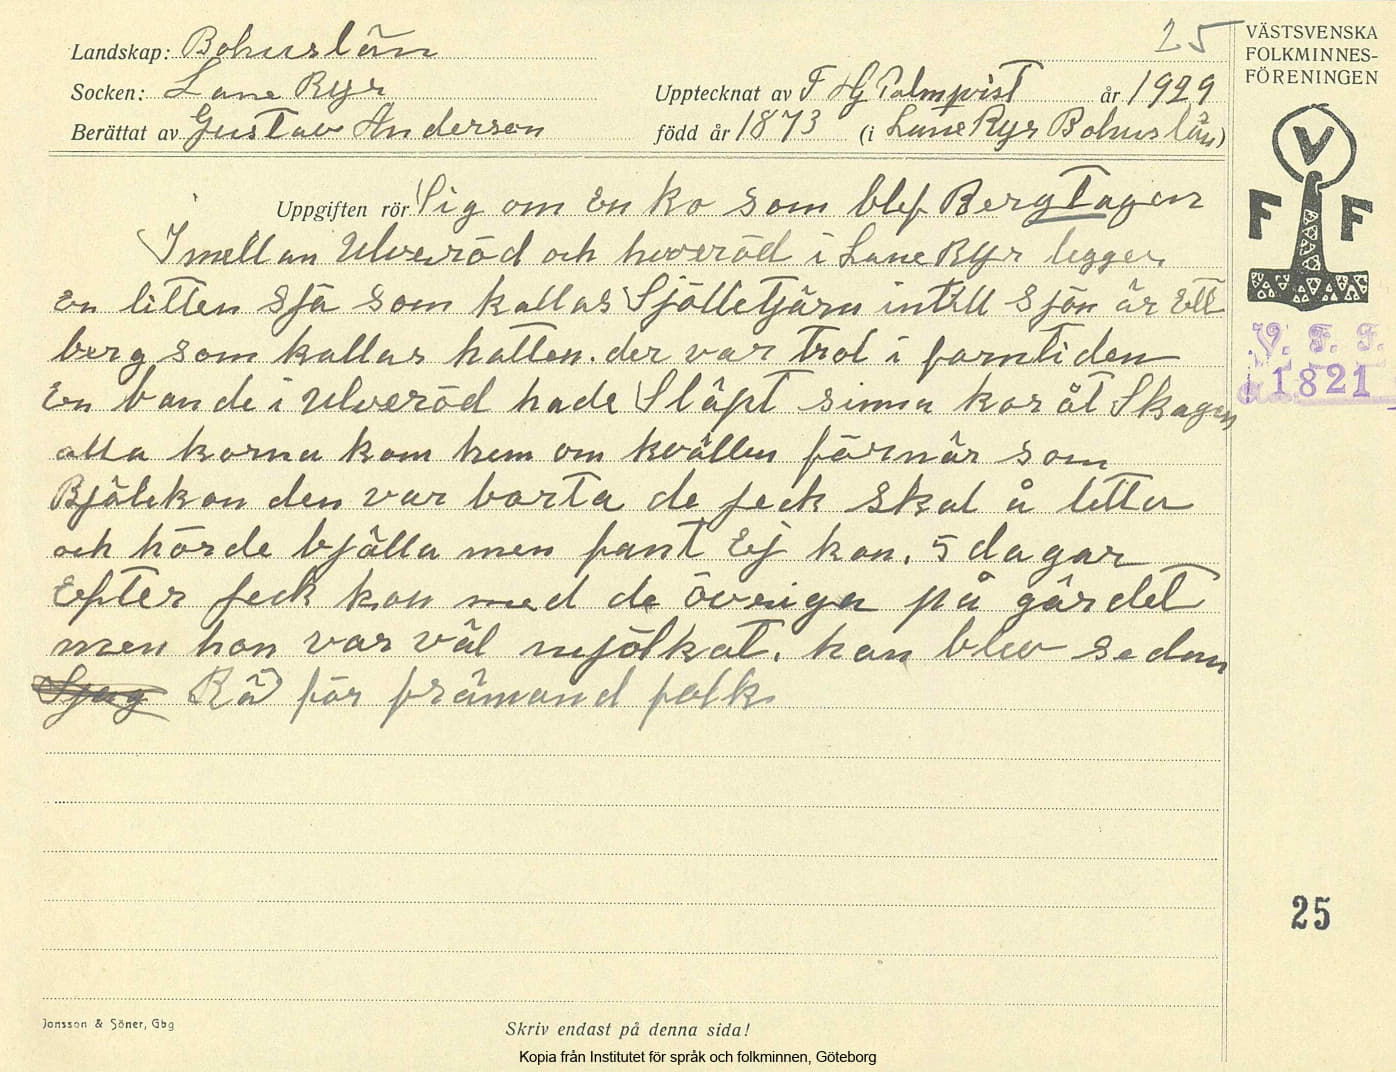 25
VÄSTSVENSKA
FOLKMINNES-
FÖRENINGEN
Landskap: Bohuslän
Socken: Lane Ryr
Upptecknat av F Hj Palmqvist år 1929
Berättat av Gustav Anderson
född år 1873 (i Lane Ryr Bohuslän)
V
F F
Uppgiften rör Sig om En ko som blef Bergtagen
I mellan Ulveröd och hoveröd i Lane Ryr legger
En litten Sjö som kallas Sjölletjärn intill Sjön är Ett
berg som kallas hatten. der var trol i forntiden
En bonde i Ulveröd hade Släpt sinna kor åt Skagen
alla korna kom hem om kvällen förnär som
Bjälekon den var borta de feck Skal å letta
och hörde bjälla men fant Ej kon. 5 dagar
Efter feck kon med de övriga på gärdet
men hon var väl mjölkat. hon blev sedan
Rä för främand folk
V. F. F.
1821
25
Jonsson & Söner, Gbg
Skriv endast på denna sida!
Kopia från Institutet för språk och folkminnen, Göteborg